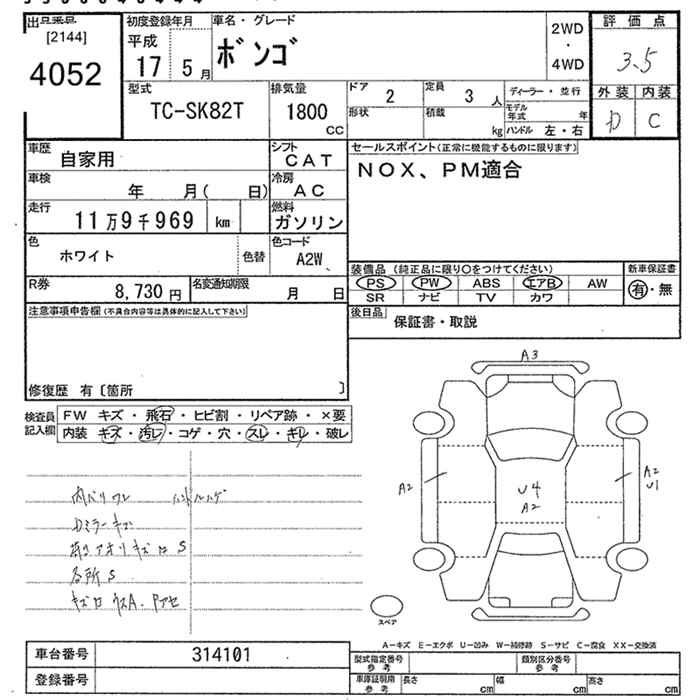 [2144]
4052
初度登録年月
平成
17 5 月
車名・グレード
ボンゴ
2WD
・
4WD
評価点
3.5
外装 内装
D C
型式
TC-SK82T
排気量
1800
CC
ドア
2
定員
3 人
形状
積載
kg
ディーラー・並行
モデル年式 年
ハンドル 左・右
車歴
自家用
シフト
CAT
車検
年 月( 日)
冷房
AC
走行
11万9千969 km
燃料
ガソリン
色
ホワイト
色替
色コード
A2W
R券
8,730 円
名変通知期限
月 日
セールスポイント(正常に機能するものに限ります)
NOX、PM適合
装備品 (純正品に限り○をつけてください)
PS PW ABS エアB AW
SR ナビ TV カワ
新車保証書
有・無
後日品
保証書・取説
注意事項申告欄(不具合内容等は具体的に記入して下さい)
修復歴 有〔箇所 〕
検査員
記入欄
FW キズ・飛石・ヒビ割・リペア跡・×要
内装 キズ・汚レ・コゲ・穴・スレ・キレ・破レ
内バリワレ ハンドルハゲ
Dミラーキズ
各所S
A3
A2
U4
A2
A2
U1
スペア
A-キズ E-エクボ U-凹み W-補修跡 S-サビ C-腐食 XX-交換済
車台番号
314101
登録番号
型式指定番号
参考
類別区分番号
参考
車庫証明用
参考
長さ cm
幅 cm
高さ cm